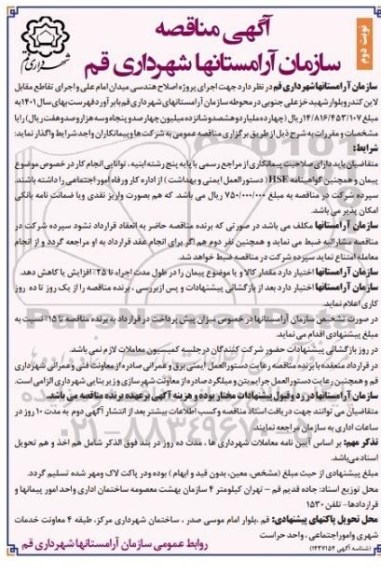 نوبت دوم
آگهی مناقصه
سازمان آرامستانها شهرداری قم
شهرداری قم
سازمان آرامستانها شهرداری قم در نظر دارد جهت اجرای پروژه اصلاح هندسی میدان امام علی و اجرای تقاطع مقابل
لاین کندرو بلوار شهید خزعلی جنوبی در محوطه سازمان آرامستانهای شهرداری قم با برآورد فهرست بهای سال 1401 به
مبلغ 14/816/453/107 ریال (چهارده میلیارد و هشتصد و شانزده میلیون چهارصد و پنجاه و سه هزار و صد و هفت ریال) با
مشخصات و مقررات به شرح ذیل از طریق برگزاری مناقصه عمومی به شرکت ها و پیمانکاران واجد شرایط واگذار نماید:
شرایط:
متقاضیان باید دارای صلاحیت پیمانکاری از مراجع رسمی با پایه پنج رشته ابنیه، توانایی انجام کار در خصوص موضوع
پیمان و همچنین گواهینامه HSE (دستورالعمل ایمنی و بهداشت) از اداره کار و رفاه امور اجتماعی را داشته باشند.
سپرده شرکت در مناقصه به مبلغ 750/000/000 ریال می باشد که هم بصورت واریز نقدی و یا ضمانت نامه بانکی
امکان پذیر می باشد.
سازمان آرامستانها مکلف می باشد در صورتی که برنده مناقصه حاضر به انعقاد قرارداد نشود سپرده شرکت در
مناقصه مشارالیه ضبط می نماید و همچنین نفر دوم هم اگر برای انجام عقد قرارداد به او مراجعه گردد و از انجام
معامله امتناع نماید سپرده شرکت در مناقصه ضبط خواهد شد.
سازمان آرامستانها اختیار دارد مقدار کالا و یا موضوع پیمان را در طول مدت اجراء تا 25٪ افزایش یا کاهش دهد.
سازمان آرامستانها اختیار دارد بعد از بازگشائی پیشنهادات و پس از بررسی ، برنده مناقصه را از یک روز تا ده روز
کاری اعلام نماید.
در صورت تشخیص سازمان آرامستانها در خصوص میزان پیش پرداخت در قرارداد به برنده مناقصه تا 15٪ نسبت به
مبلغ پیشنهادی اقدام می نماید.
در روز بازگشائی پیشنهادات حضور شرکت کنندگان در جلسه کمیسیون معاملات لازم نمی باشد.
در قرارداد منعقده با برنده مناقصه رعایت دستورالعمل ایمنی برق و عمرانی صادره از معاونت فنی و عمرانی شهرداری
قم و همچنین رعایت دستورالعمل جرایم بتن و میلگرد صادره از معاونت شهرسازی و زیربنایی شهرداری الزامی است.
سازمان آرامستانها در رد و قبول پیشنهادات مختار بوده و هزینه آگهی بر عهده برنده مناقصه می باشد.
متقاضیان می توانند جهت دریافت اسناد مناقصه و کسب اطلاعات بیشتر بعد از انتشار آگهی دوم به مدت 10 روز در
ساعات اداری به سازمان مراجعه نمایند.
تذکر مهم: بر اساس آیین نامه معاملات شهرداری ها ، مدت ده روز در بند فوق الذکر شامل هم اخذ و هم تحویل
اسناد می باشد.
مبلغ پیشنهادی از حیث مبلغ (مشخص، معین، بدون قید و ابهام) بوده و در پاکت لاک و مهر شده تسلیم گردد.
محل توزیع اسناد: جاده قدیم قم - تهران کیلومتر 4 سازمان بهشت معصومه ساختمان اداری واحد امور پیمانها و
قراردادها- تلفن 1530
محل تحویل پاکتهای پیشنهادی: قم ،بلوار امام موسی صدر ، ساختمان شهرداری مرکز، طبقه 4 معاونت خدمات
شهری و امور اجتماعی ، واحد حراست
(شناسه آگهی 1437154)
روابط عمومی سازمان آرامستانها شهرداری قم